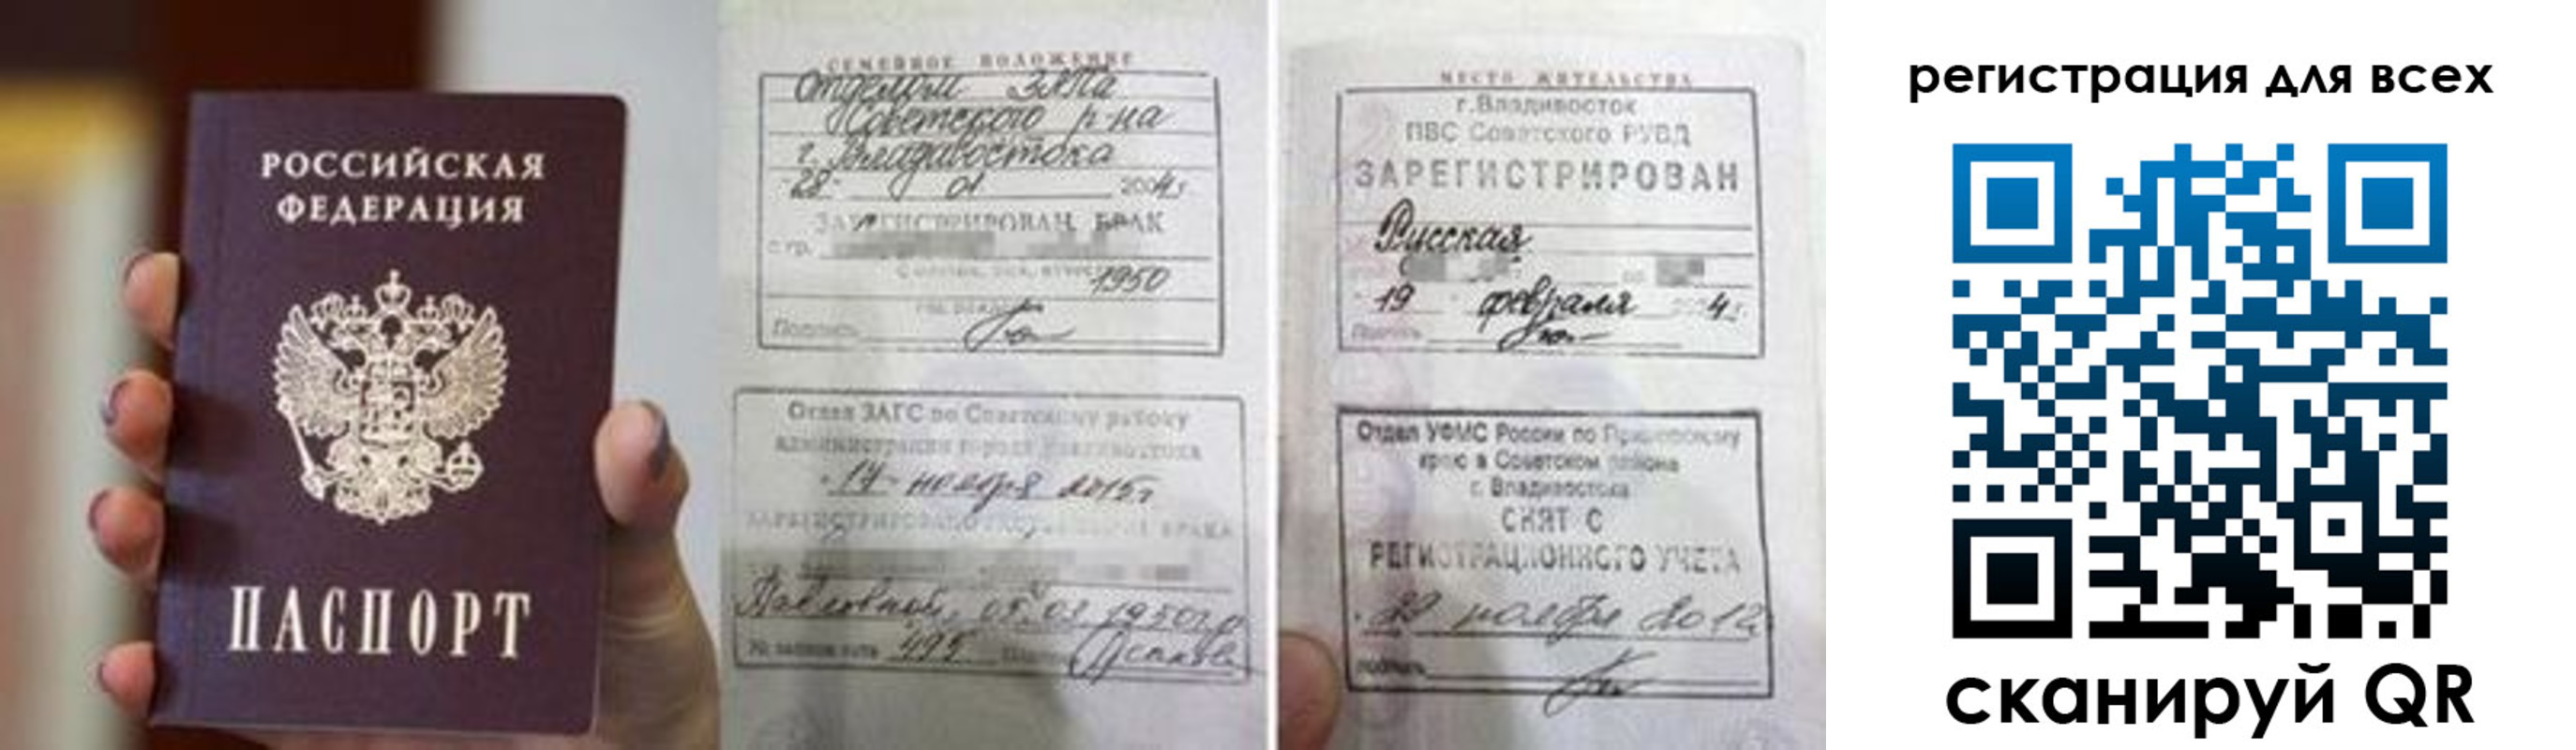 РОССИЙСКАЯ
ФЕДЕРАЦИЯ
ПАСПОРТ
СЕМЕЙНОЕ ПОЛОЖЕНИЕ
Отделом ЗАГСа
Советского р-на
г. Владивостока
"28" 01 2004г.
ЗАРЕГИСТРИРОВАН БРАК
с гр.
1950
Подпись
Отдел ЗАГС по Советскому району
администрации города Владивостока
"17" ноября 2015г
Павловной, 05.03.1950г.р
495
МЕСТО ЖИТЕЛЬСТВА
г.Владивосток
ПВС Советского РУВД
ЗАРЕГИСТРИРОВАН
Русская
19 февраля 4г.
Подпись
Отдел УФМС России по Приморскому
краю в Советском районе
г. Владивостока
СНЯТ С
РЕГИСТРАЦИОННОГО УЧЕТА
ноября 2012
подпись
регистрация для всех
сканируй QR